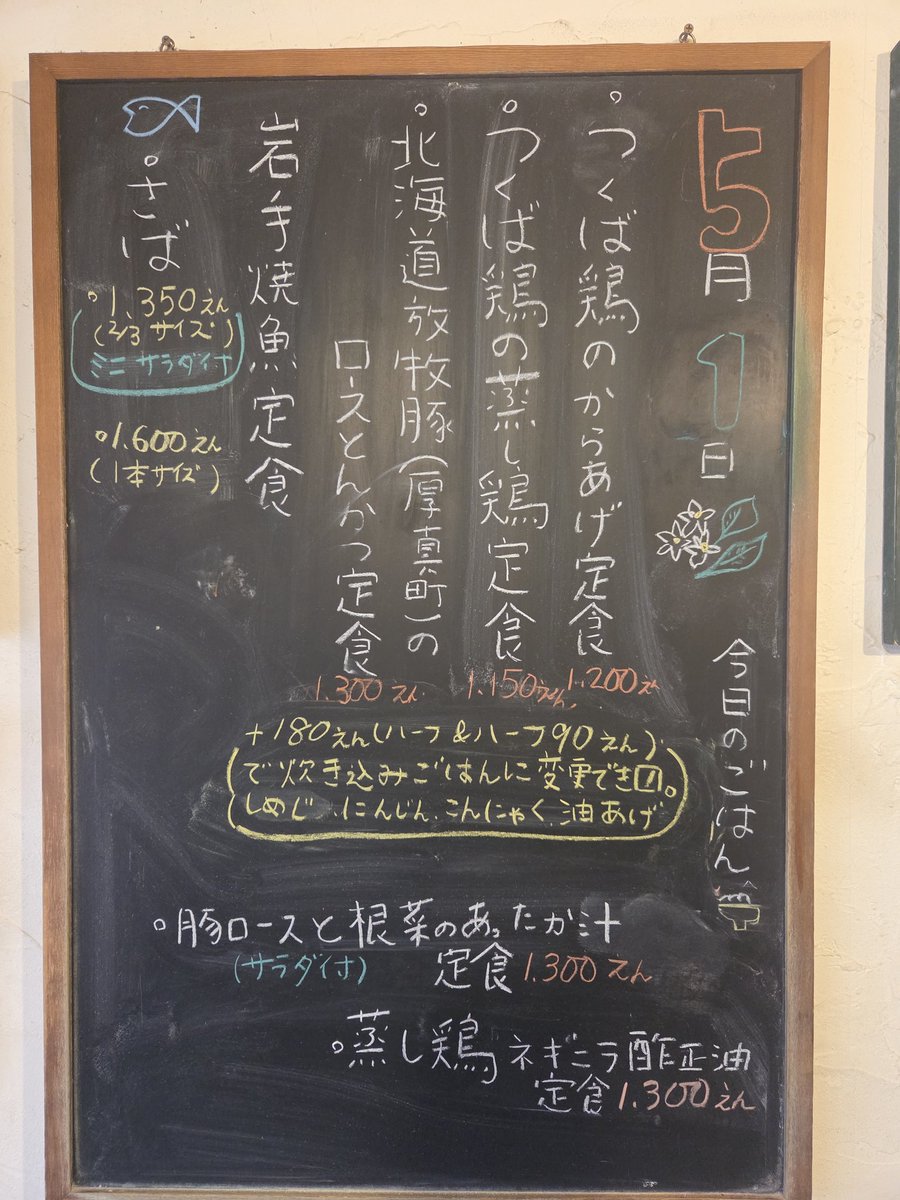 5月1日
今日のごはん
つくば鶏のからあげ定食
1.200えん
つくば鶏の蒸し鶏定食
1.150えん
北海道放牧豚(厚真町)の
ロースとんかつ定食
1.300えん
岩手焼魚定食
さば
1.350えん
(2/3サイズ)
ミニサラダ付
1.600えん
(1本サイズ)
+180えん(ハーフ&ハーフ90えん)
で炊き込みごはんに変更でき〼。
しめじ、にんじん、こんにゃく、油あげ
豚ロースと根菜のあったか汁
(サラダ付) 定食 1.300えん
蒸し鶏 ネギニラ酢正油
定食 1.300えん